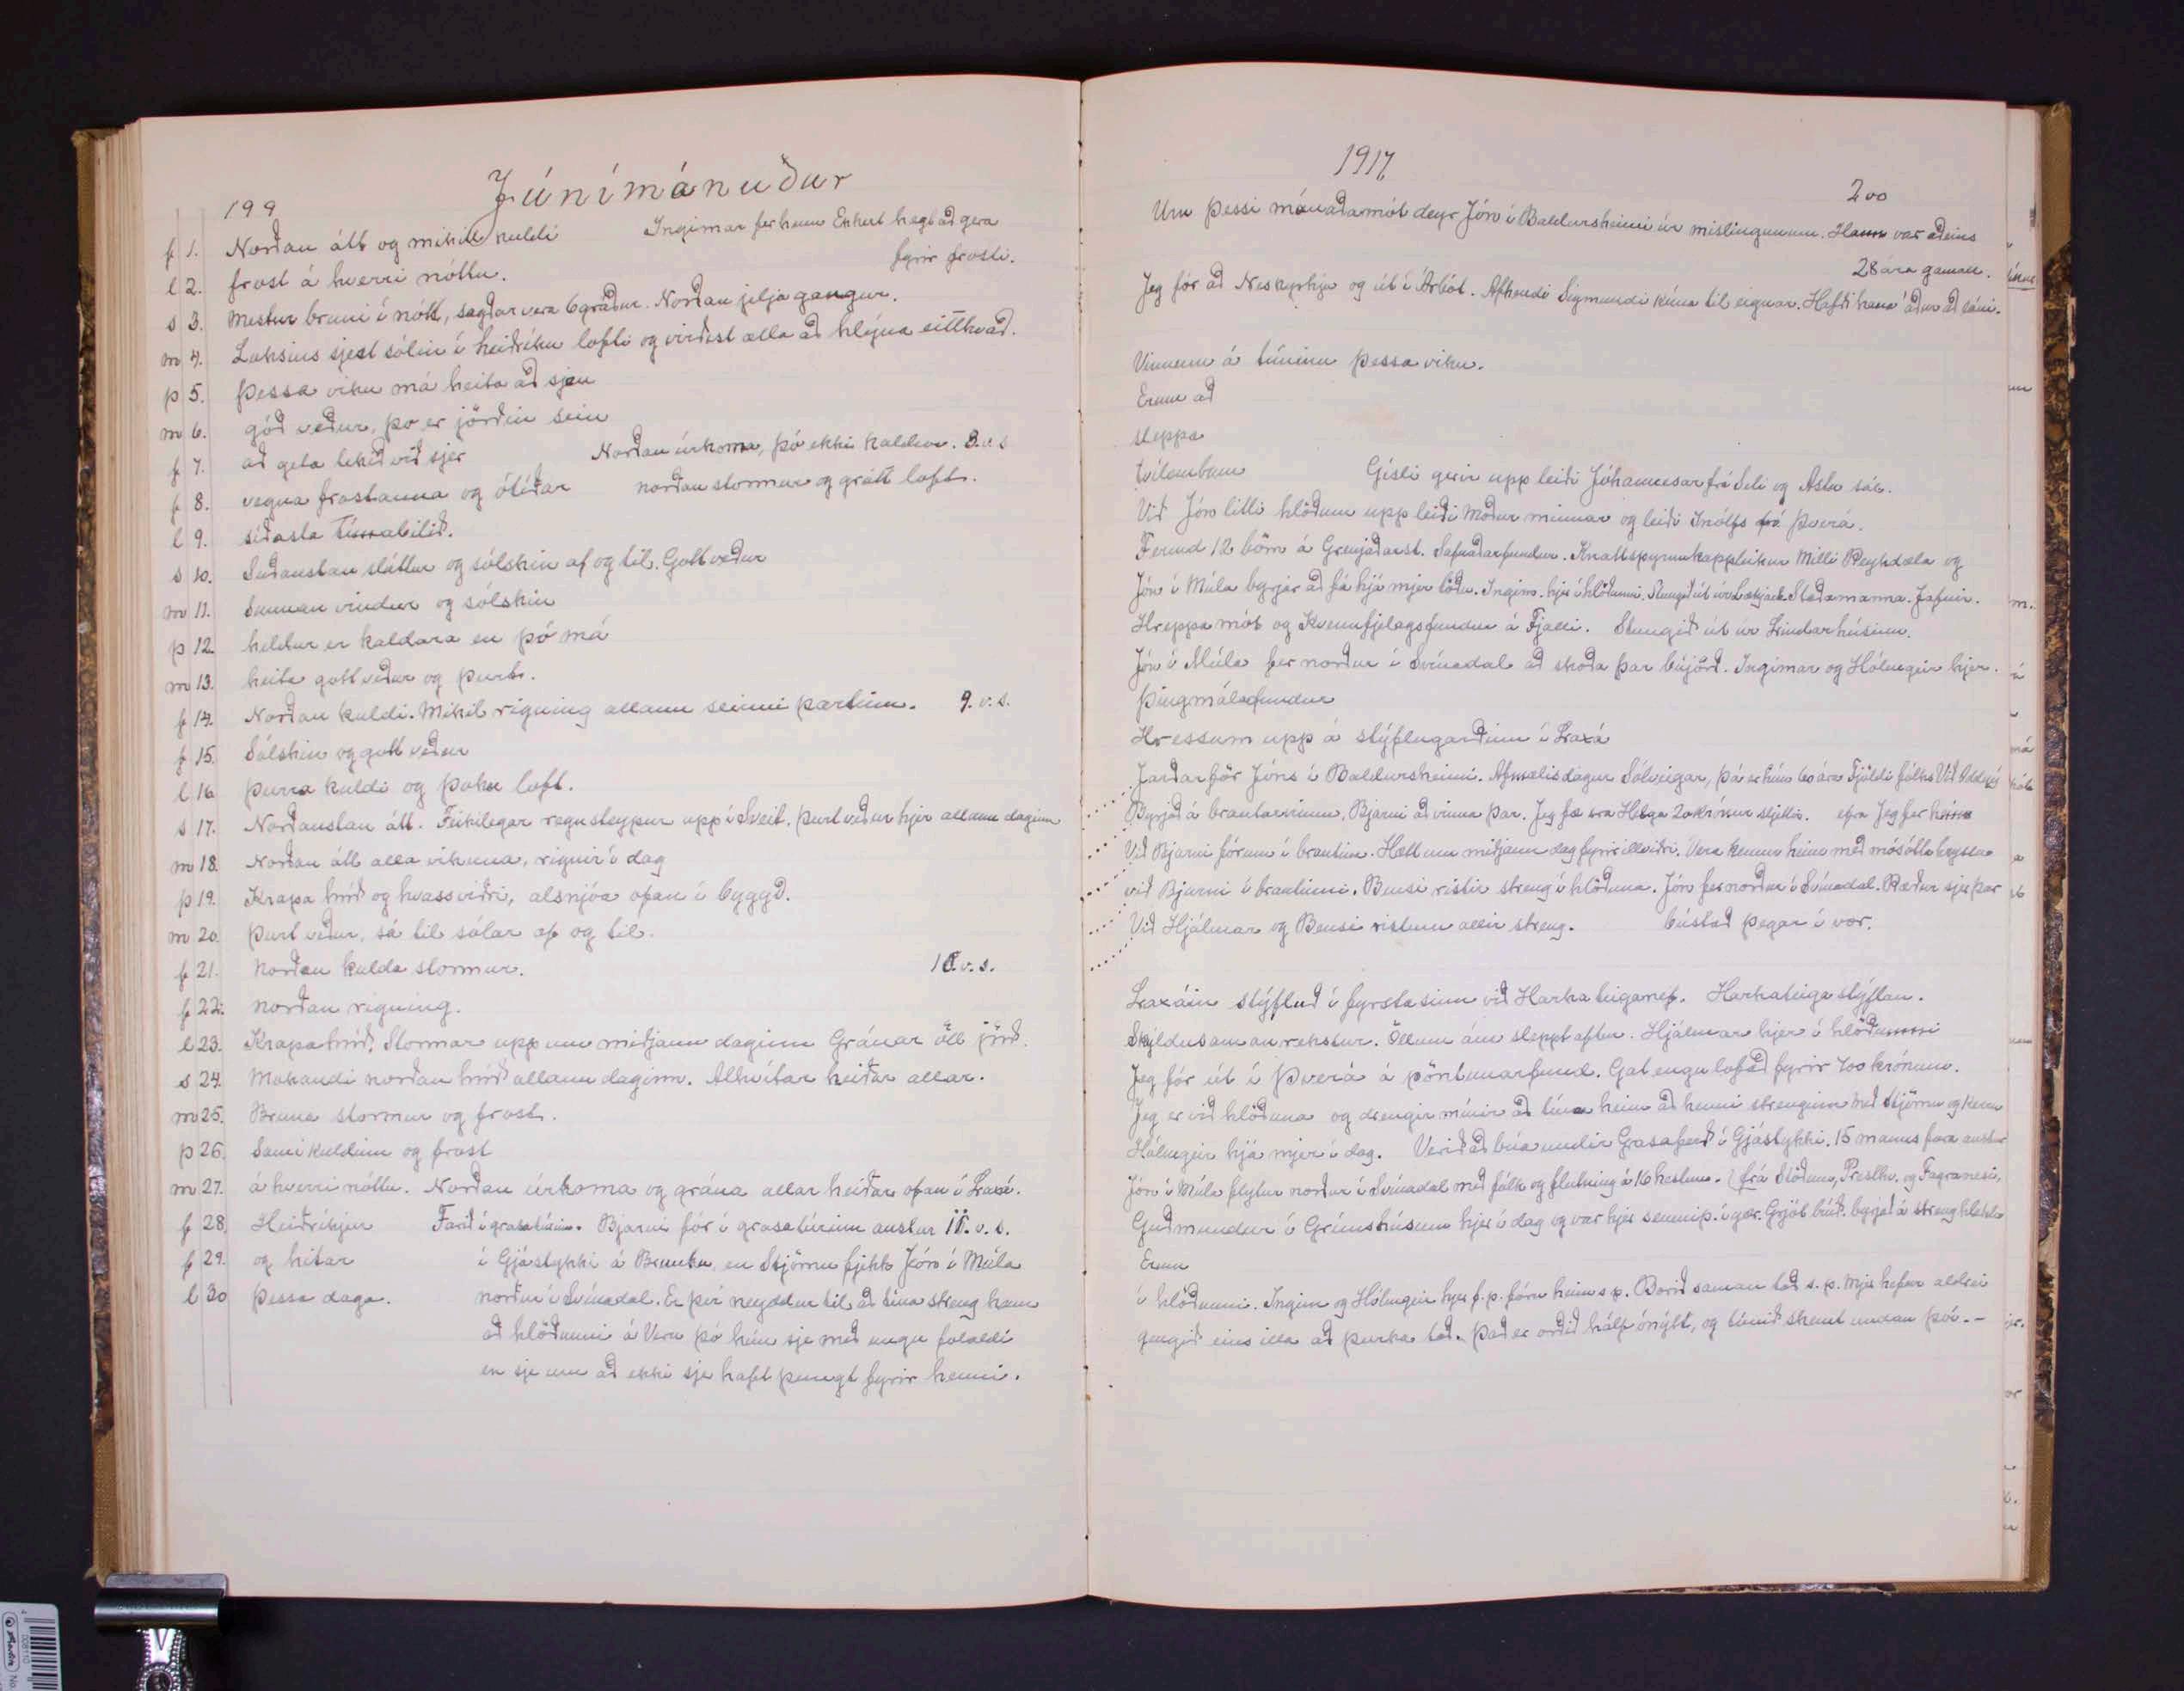 199
Júnímánuður
f 1. Norðan átt og mikill kuldi Ingimar fer heim Ekkert hægt að gera
fyrir frosti.
l 2. frost á hverri nóttu.
s 3. Mestur bruni í nótt, sagðar vera 6 gráður. Norðan jeljagangur.
m 4. Loksins sjest sólin í heiðríku lofti og virðist ætla að hlýna eitthvað.
þ 5. Þessa viku má heita að sjeu
m 6. góð veður, þo er jörðin sein
f 7. að geta tekið við sjer Norðan úrkoma, þó ekki kaldur. 8. v. s
f 8. vegna frostanna og ótíðar norðan stormur og grátt loft.
l 9. síðasta tímabilið.
s 10. Suðaustan sláttur og sólskin af og til. Gott veður
m 11. Sunnan vindur og sólskin
þ 12. heldur er kaldara en þó má
m 13. heita gott veður og þurt.
f 14. Norðan kuldi. Mikil rigning allann seinni partinn. 9. v. s.
f 15. Sólskin og gott veður
l 16 þurra kuldi og þoku loft.
s 17. Norðaustan átt. Feikilegar regnsteypur upp í Sveit. þurt veður hjer allann daginn
m 18. Norðan átt alla vikuna, rignir í dag
þ 19. Krapa hríð og hvassviðri, alsnjóa ofan í byggð.
m 20. Þurt veður, sá til sólar af og til.
f 21. Norðan kulda stormur. 10. v. s.
f 22. norðan rigning.
l 23. Krapahríð, Stormar upp um miðjann daginn Gránar öll jörð.
s 24. Makandi norðan hríð allann daginn. Alhvítar heiðar allar.
m 25. Bruna stormur og frost.
þ 26. Sami kuldinn og frost
m 27. á hverri nóttu. Norðan úrkoma og grána allar heiðar ofan í Laxá.
f 28. Heiðríkjur Farið í grasatúrinn. Bjarni fór í grasatúrinn austur 11. v. s.
f 29. og hitar í Gjástykki á Brunku, en Stjörnu fjekk Jón í Múla
l 30 þessa daga. norður í Svínadal. Er því neyddur til að tína streng heim
að hlöðunni á Veru þó hún sje með ungu folaldi
en sje um að ekki sje haft þungt fyrir henni.
1917
200
Um þessi mánaðamót deyr Jón í Baldursheimi úr mislingunum. Hann var aðeins
28 ára gamall.
Jeg fór að Neskyrkju og út í Árbót. Afhendi Sigmundi kúna til eignar. Hafði hana áður að láni.
Vinnum á túninu þessa viku.
Erum að
sleppa
tvílembum Gísli gerir upp leiði Jóhannesar frá Seli og Astu sál.
Við Jón litli hlöðum upp leiði Móður minnar og leiði Inólfs frá Þverá.
Fermd 12 börn á Grenjaðarst. Safnaðarfundur. Knattspyrnukappleikur Milli Reykdæla og
Jón í Múla byrjar að fá hjá mjer töðu. Ingim. hjer í hlöðunni. Stungið út úr Lækjark. Staðamanna. Jafnir.
Hreppamót og Kvennfjelagsfundur á Fjalli. Stungið út úr Lindarhúsinu.
Jón í Múla fer norður í Svínadal að skoða þar bújörð. Ingimar og Hólmgeir hjer.
Þingmálafundur
Hressum upp á stýflugarðinn í Laxá
Jarðarför Jóns í Baldursheimi. Afmælisdagur Sólveigar, þá er hún 60 ára Fjöldi fólks Við Oddný
Byrjað á brautarvinnu. Bjarni að vinna þar. Jeg fæ  Helga 20 krónur sljettir. Jeg fer
Við Bjarni förum í brautina. Hætt um miðjann dag fyrir illviðri. Vera kemur heim með mósótta hryssu
við Bjarni í brautinni. Bensi ristir streng í hlöðuna. Jón fer norður í Svínadal. Ræður sjer þar
Við Hjálmar og Bensi ristum allir streng. bústað þegar í vor.
Laxáin stýfluð í fyrsta sinn við Harhaleiganef. Harhaleiga stýflan.
Skyldusamanrekstur. Öllum ám sleppt aftur. Hjálmar hjer í hlöðunni
Jeg fór út í Þverá á pöntunarfund. Gat engu lofað fyrir 700 krónum.
Jeg er við hlöðuna og drengir mínir að tína heim að henni strenginn með Stjörnu og Veru
Hólmgeir hjá mjer í dag. Verið að búa undir Grasaferð í Gjástykki. 15 manns fara austur
Jón í Múla flytur norður í Svínadal með fólk og flutning á 16 hestum. (frá Stöðum, Presthv. og Fagranesi,
Guðmundur í Grímshúsum hjer í dag og var hjer seinnip. í gær. Grjót búið. byrjað á strenghleðslu
Erum
í hlöðunni. Ingim og Hólmgeir hjer f.p. fóru heim s p. Borið saman tað s. p. Mjer hefur aldrei
gengið eins illa að þurka tað. Það er orðið hálf ónýtt, og túnið skemt undan því. -